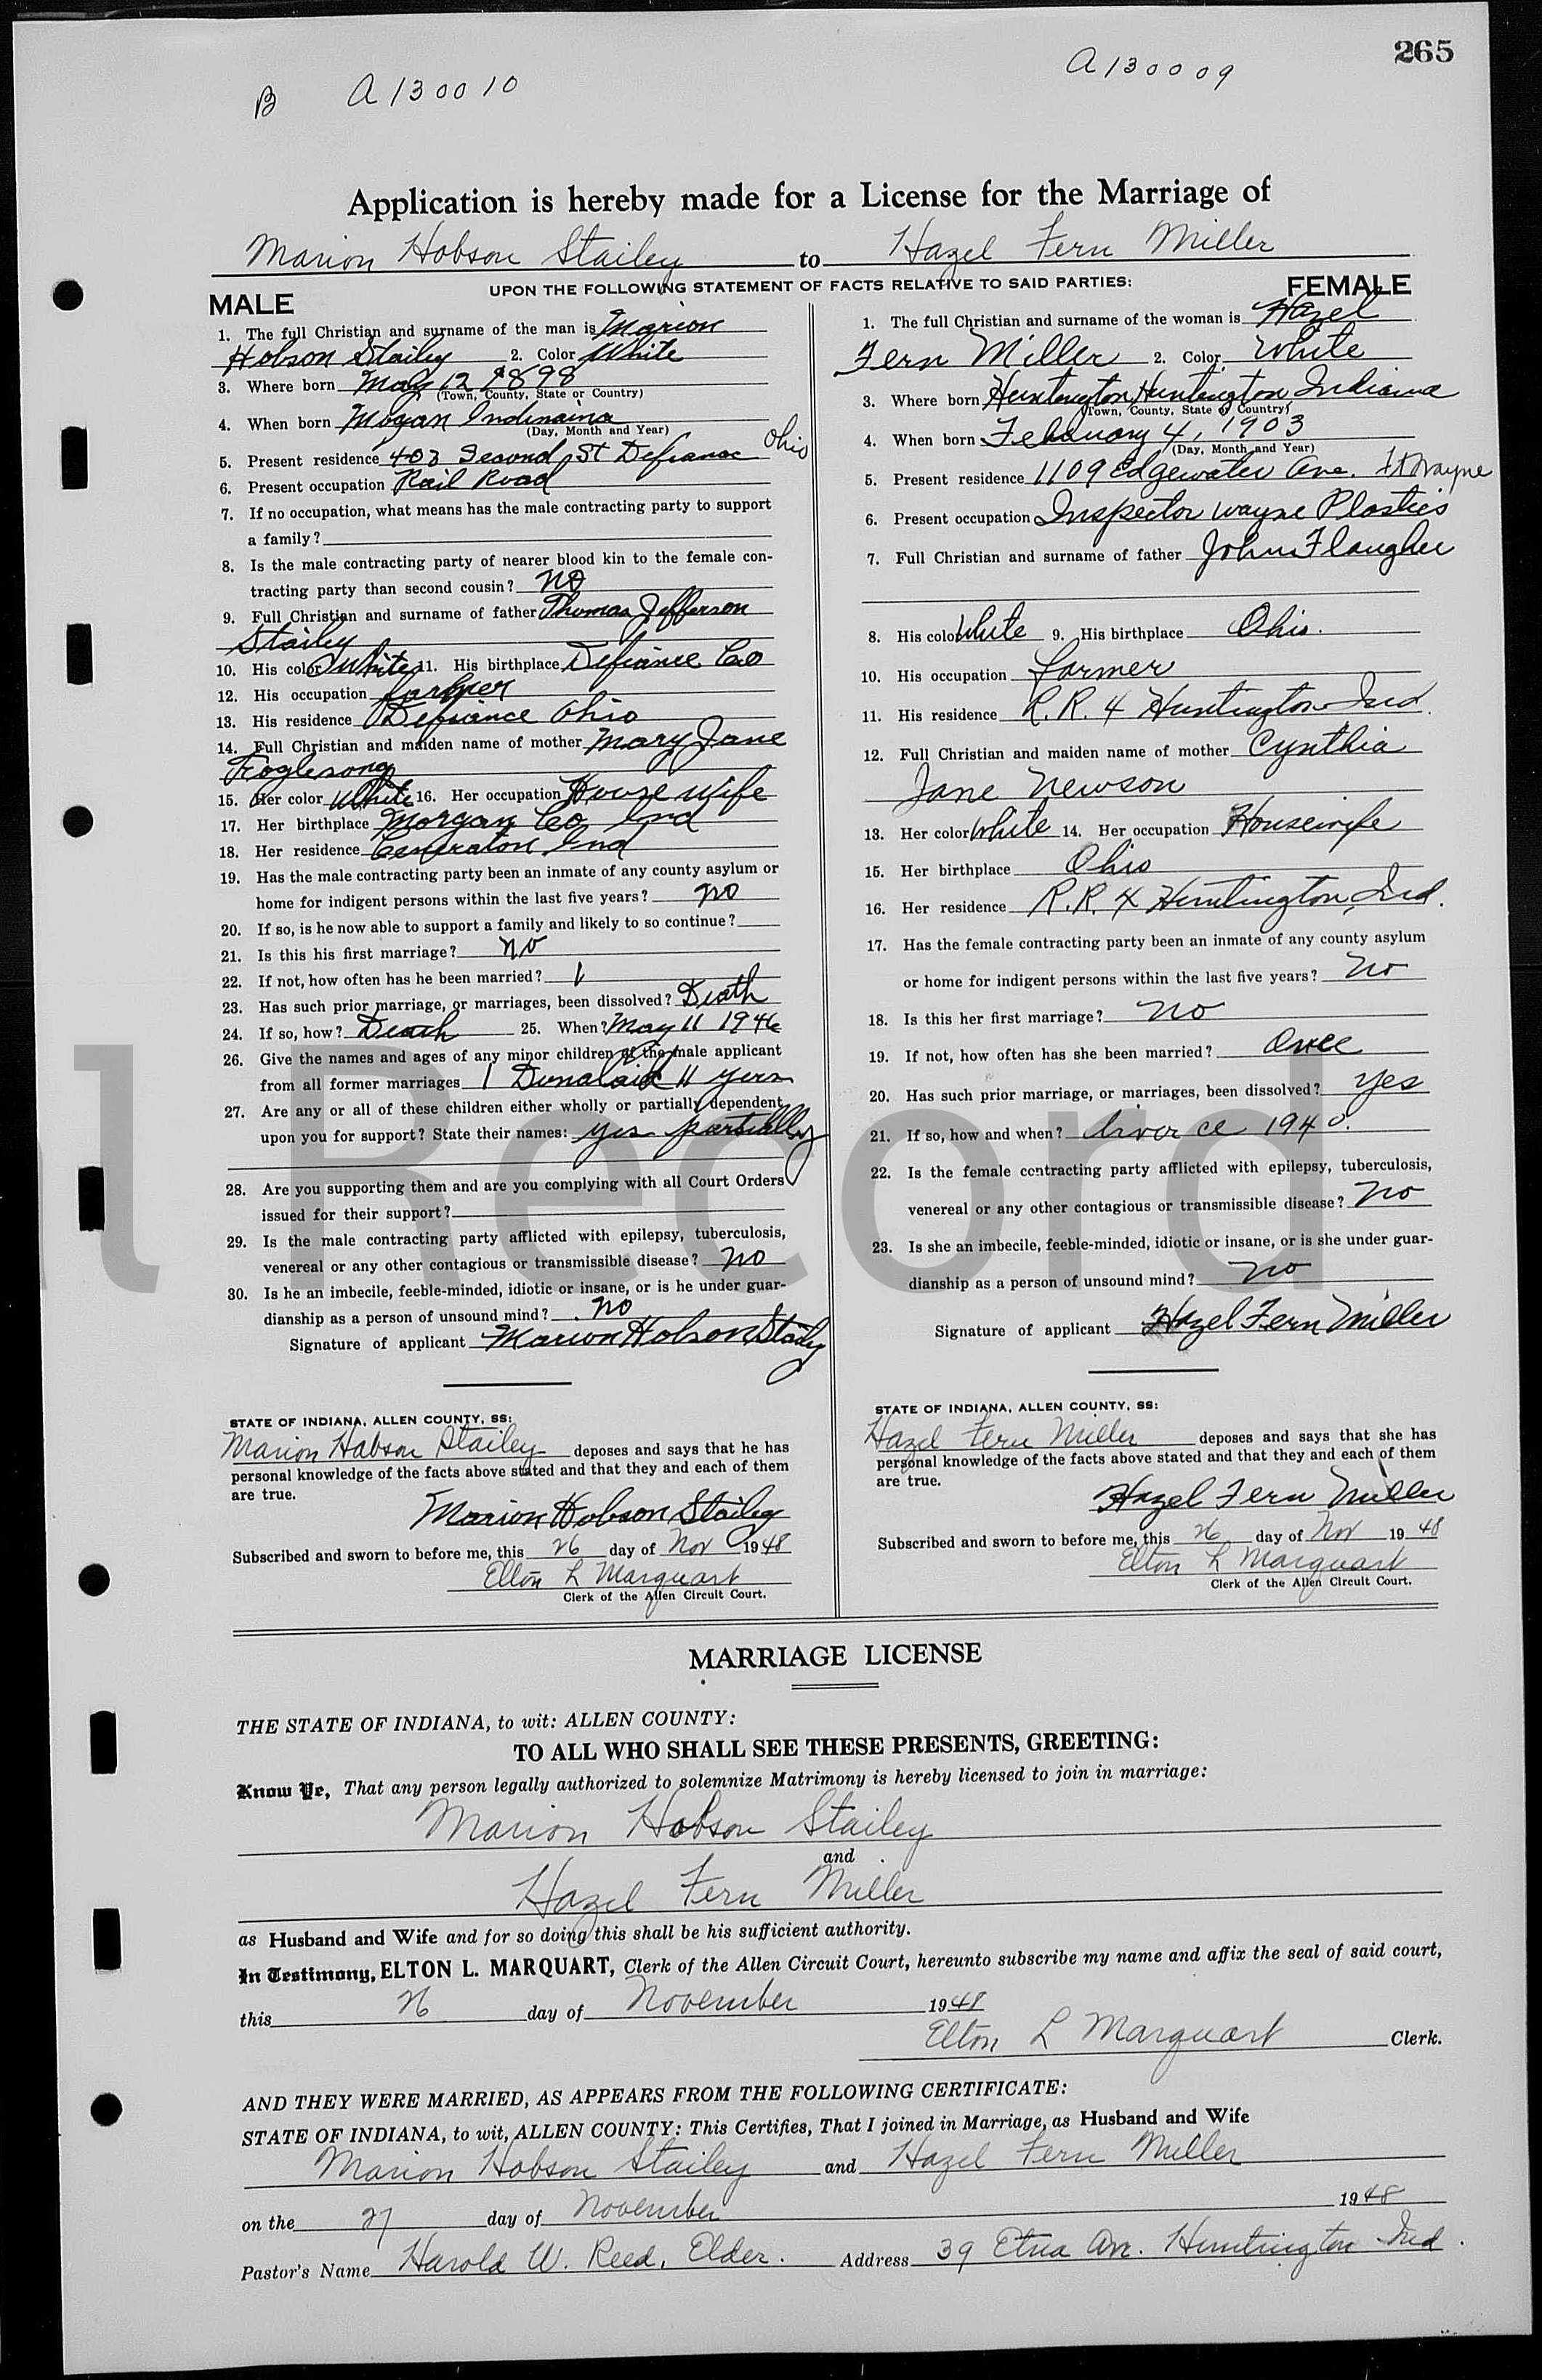 265
B A130010 A130009
Application is hereby made for a License for the Marriage of
Marion Hobson Stailey to Hazel Fern Miller
UPON THE FOLLOWING STATEMENT OF FACTS RELATIVE TO SAID PARTIES:
MALE
1. The full Christian and surname of the man is Marion
Hobson Stailey 2. Color White
3. Where born May 12 1898
(Town, County, State or Country)
4. When born Mogan Indinaina
(Day, Month and Year)
5. Present residence 403 Second St Defiance Ohio
6. Present occupation Rail Road
7. If no occupation, what means has the male contracting party to support
a family?
8. Is the male contracting party of nearer blood kin to the female con-
tracting party than second cousin? no
9. Full Christian and surname of father Thomas Jefferson
Stailey
10. His color White 11. His birthplace Defiance Co
12. His occupation farmer
13. His residence Defiance Ohio
14. Full Christian and maiden name of mother Mary Jane
Foglesong
15. Her color White 16. Her occupation House wife
17. Her birthplace Morgan Co Ind
18. Her residence Ind
19. Has the male contracting party been an inmate of any county asylum or
home for indigent persons within the last five years? no
20. If so, is he now able to support a family and likely to so continue?
21. Is this his first marriage? no
22. If not, how often has he been married? 1
23. Has such prior marriage, or marriages, been dissolved? Death
24. If so, how? Death 25. When? May 11 1946
26. Give the names and ages of any minor children of the male applicant
from all former marriages 1 11 years
27. Are any or all of these children either wholly or partially dependent
upon you for support? State their names: yes partially
28. Are you supporting them and are you complying with all Court Orders
issued for their support?
29. Is the male contracting party afflicted with epilepsy, tuberculosis,
venereal or any other contagious or transmissible disease? no
30. Is he an imbecile, feeble-minded, idiotic or insane, or is he under guar-
dianship as a person of unsound mind? no
Signature of applicant Marion Hobson Stailey
STATE OF INDIANA, ALLEN COUNTY, SS:
Marion Hobson Stailey deposes and says that he has
personal knowledge of the facts above stated and that they and each of them
are true.
Marion Hobson Stailey
Subscribed and sworn to before me, this 26 day of Nov 1948
Elton L Marquart
Clerk of the Allen Circuit Court.
FEMALE
1. The full Christian and surname of the woman is Hazel
Fern Miller 2. Color White
3. Where born Huntington, Huntington Indiana
(Town, County, State or Country)
4. When born February 4, 1903
(Day, Month and Year)
5. Present residence 1109 Edgewater Ave. Ft Wayne
6. Present occupation Inspector Wayne Plastics
7. Full Christian and surname of father John Flaugher
8. His color White 9. His birthplace Ohio.
10. His occupation farmer
11. His residence R.R. 4 Huntington Ind.
12. Full Christian and maiden name of mother Cynthia
Jane Newson
13. Her color White 14. Her occupation Housewife
15. Her birthplace Ohio
16. Her residence R.R. 4 Huntington, Ind.
17. Has the female contracting party been an inmate of any county asylum
or home for indigent persons within the last five years? no
18. Is this her first marriage? no
19. If not, how often has she been married? Once
20. Has such prior marriage, or marriages, been dissolved? yes
21. If so, how and when? divorce 1940.
22. Is the female contracting party afflicted with epilepsy, tuberculosis,
venereal or any other contagious or transmissible disease? no
23. Is she an imbecile, feeble-minded, idiotic or insane, or is she under guar-
dianship as a person of unsound mind? no
Signature of applicant Hazel Fern Miller
STATE OF INDIANA, ALLEN COUNTY, SS:
Hazel Fern Miller deposes and says that she has
personal knowledge of the facts above stated and that they and each of them
are true.
Hazel Fern Miller
Subscribed and sworn to before me, this 26 day of Nov 1948
Elton L Marquart
Clerk of the Allen Circuit Court.
l Record
MARRIAGE LICENSE
THE STATE OF INDIANA, to wit: ALLEN COUNTY:
TO ALL WHO SHALL SEE THESE PRESENTS, GREETING:
Know Ye, That any person legally authorized to solemnize Matrimony is hereby licensed to join in marriage:
Marion Hobson Stailey
and
Hazel Fern Miller
as Husband and Wife and for so doing this shall be his sufficient authority.
In Testimony, ELTON L. MARQUART, Clerk of the Allen Circuit Court, hereunto subscribe my name and affix the seal of said court,
this 26 day of November 1948
Elton L Marquart Clerk.
AND THEY WERE MARRIED, AS APPEARS FROM THE FOLLOWING CERTIFICATE:
STATE OF INDIANA, to wit, ALLEN COUNTY: This Certifies, That I joined in Marriage, as Husband and Wife
Marion Hobson Stailey and Hazel Fern Miller
on the 27 day of November 1948
Pastor's Name Harold W. Reed, Elder. Address 39 Etna Ave. Huntington Ind.